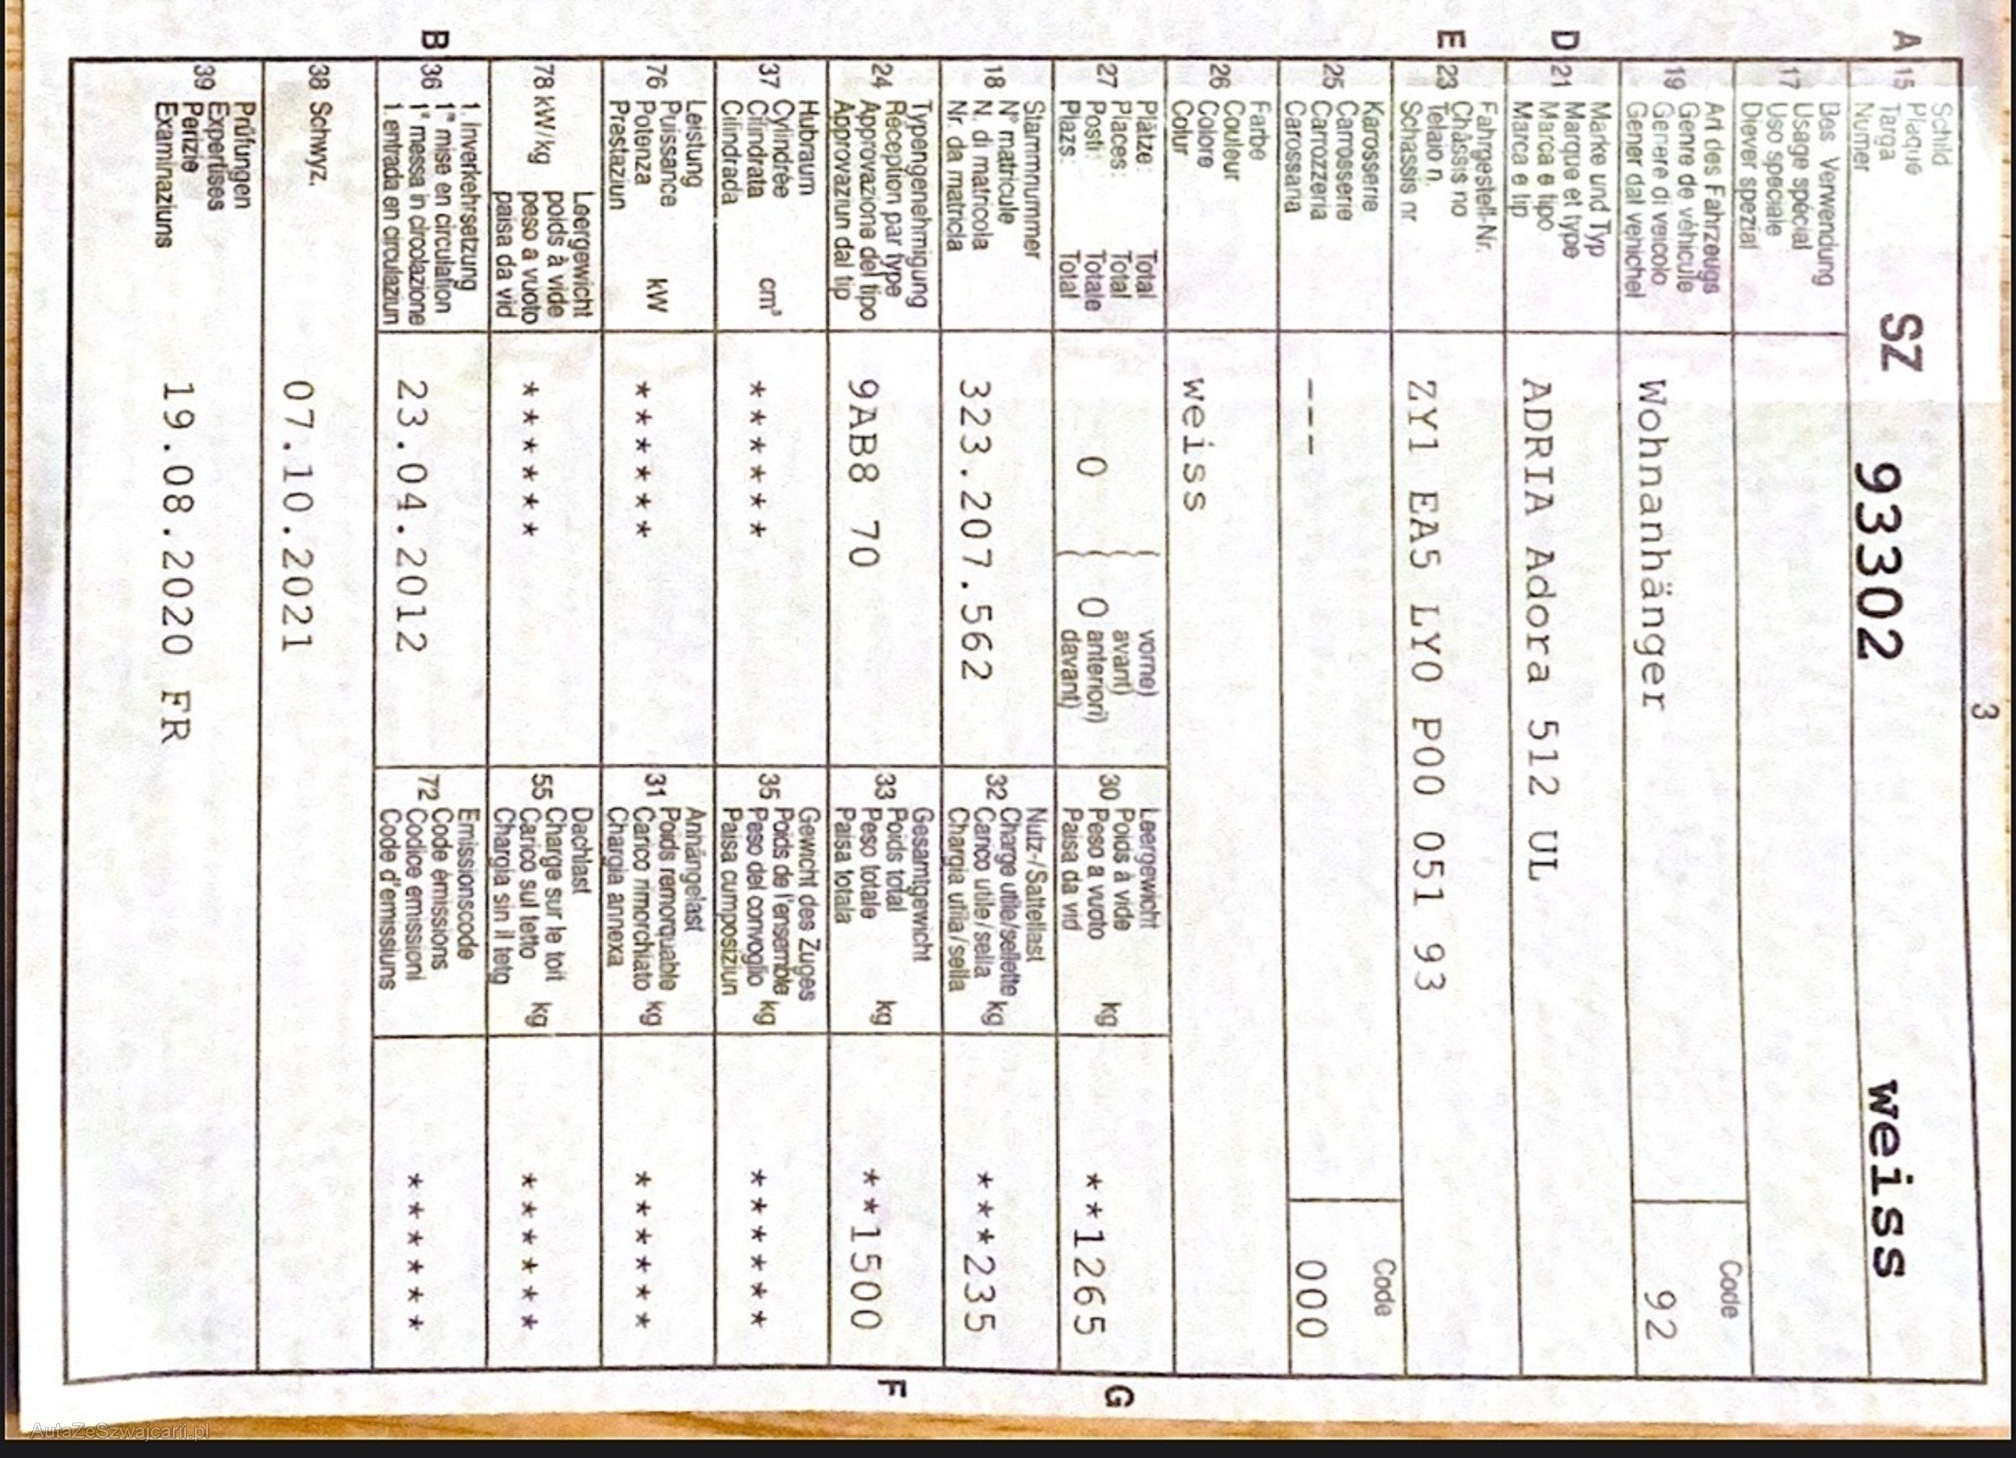 3
A
Schild
Plaque
15 Targa
Numer
SZ 93302 weiss
Bes. Verwendung
Usage spécial
17 Uso speciale
Diever spezial
Art des Fahrzeugs
Genre de véhicule
19 Genere di veicolo
Gener dal vehichel
Wohnanhänger
Code
92
D
Marke und Typ
Marque et type
21 Marca e tipo
Marca e tip
ADRIA Adora 512 UL
E
Fahrgestell-Nr.
Châssis no
23 Telaio n.
Schassis nr.
ZY1 EA5 LY0 P00 051 93
Karosserie
Carrosserie
25 Carrozzeria
Carossaria
---
Code
000
Farbe
Couleur
26 Colore
Colur
weiss
Plätze: Total
Places: Total
27 Posti: Totale
Plazs: Total
0
( 0
vorne)
avant)
anteriori)
davant)
Leergewicht
Poids à vide
30 Peso a vuoto kg
Paisa da vid
**1265
G
Stammnummer
N° matricule
18 N. di matricola
Nr. da matricla
323.207.562
Nutz-/Sattellast
Charge utile/sellette
32 Carico utile/sella kg
Chargia utila/sella
***235
Typengenehmigung
Réception par type
24 Approvazione del tipo
Approvaziun dal tip
9AB8 70
Gesamtgewicht
Poids total
33 Peso totale kg
Paisa totala
**1500
F
Hubraum
Cylindrée
37 Cilindrata cm³
Cilindrada
******
Gewicht des Zuges
Poids de l'ensemble
35 Peso del convoglio kg
Paisa cumposiziun
*******
Leistung
Puissance
76 Potenza kW
Prestaziun
******
Anhängelast
Poids remorquable
31 Carico rimorchiato kg
Chargia annexa
*******
Leergewicht
poids à vide
78 kW/kg peso a vuoto
paisa da vid
******
Dachlast
Charge sur le toit
55 Carico sul tetto kg
Chargia sin il tetg
*******
B
1. Inverkehrsetzung
1re mise en circulation
36 1a messa in circolazione
1. entrada en circulaziun
23.04.2012
Emissionscode
Code émissions
72 Codice emissioni
Code d'emissiuns
*******
38 Schwyz.
07.10.2021
Prüfungen
Expertises
39 Perizie
Examinaziuns
19.08.2020 FR
AutaZeSzwajcarii.pl